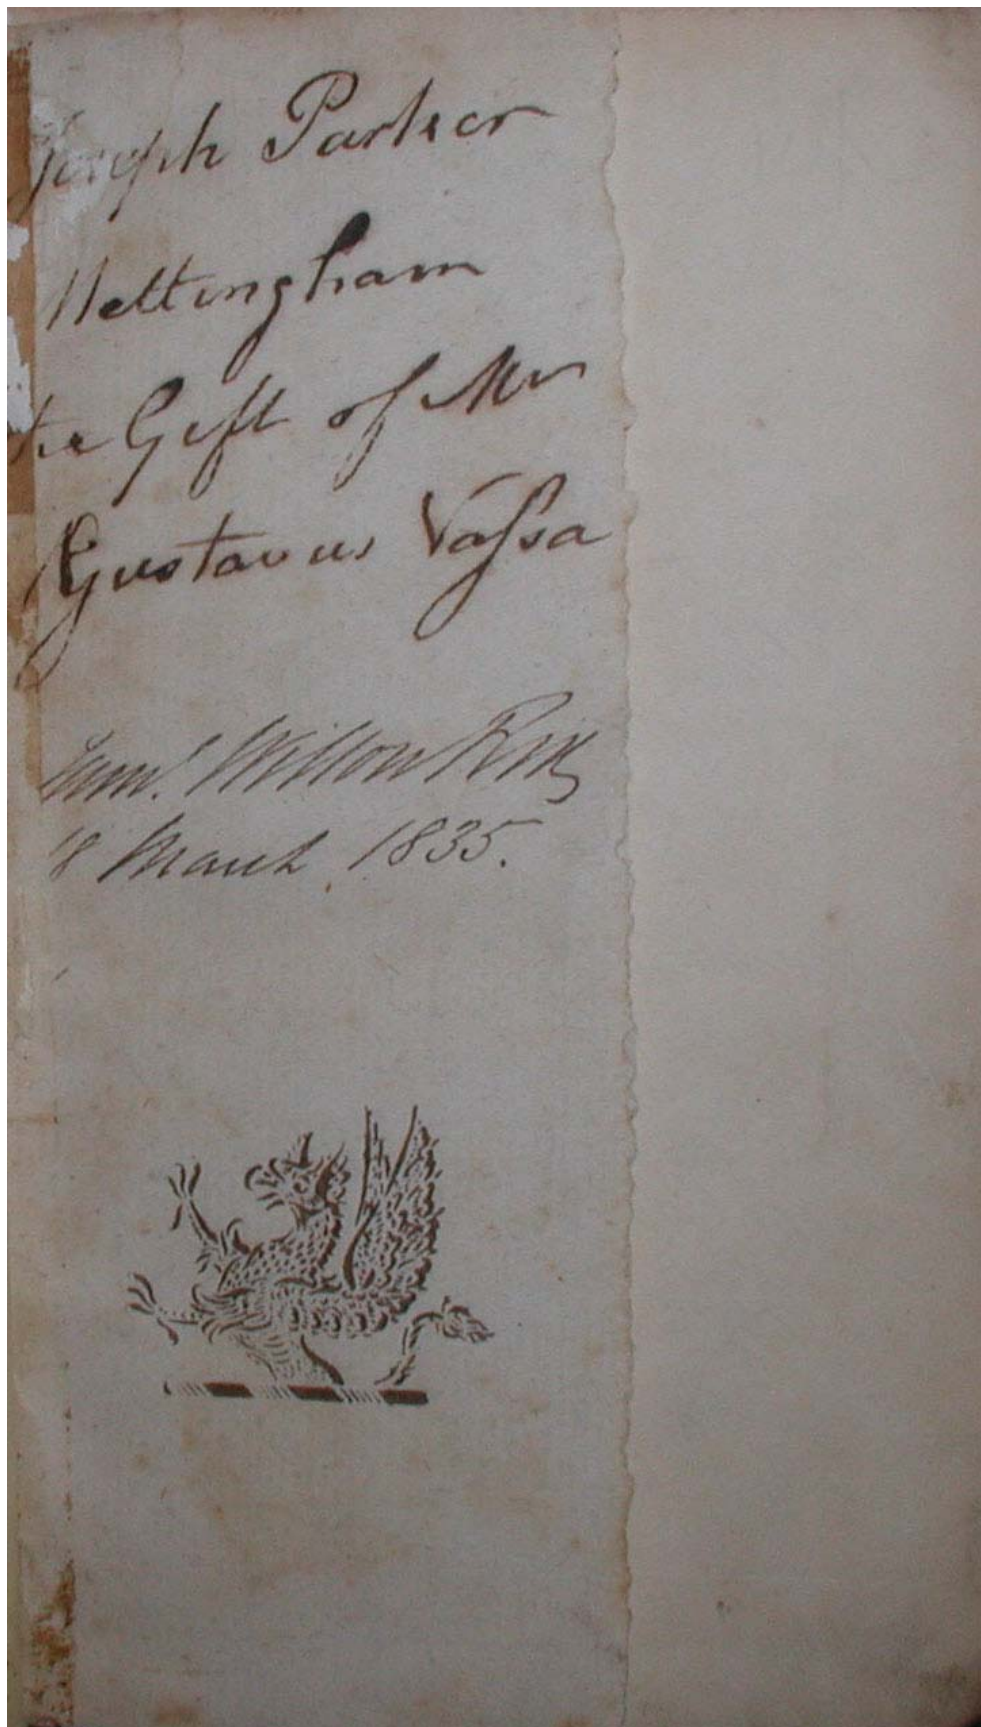 Joseph Parker
Nottingham
the Gift of Mr
Gustavus Vaſsa
Saml. Wilton Rix
18 March 1835.